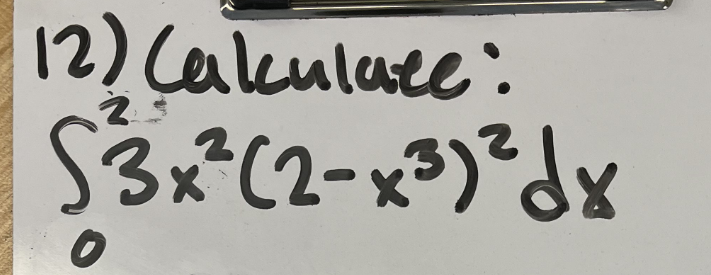 12) Calculate:
∫₀² 3x²(2-x³)² dx